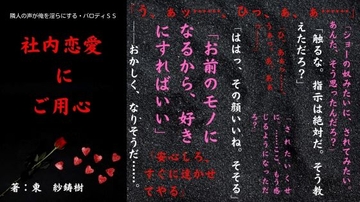 隣人の声が俺を淫らにする・パロディSS
社内恋愛
に
ご用心
著:東 紗鋳樹
「ジョーの奴みたいに、されてみたい
あんた、そう思ったんだろ?」
「触るな。指示は絶対だ。そう教
えただろ?」
「う、ぁッ……、ひっ、ぁ、あ……」
「ははっ、その顔いいね。そそる」
「お前のモノに
なるから、好き
にすればいい」
「安心しろ、
すぐに泣かせ
てやる」
――おかしく、なりそうだ……。